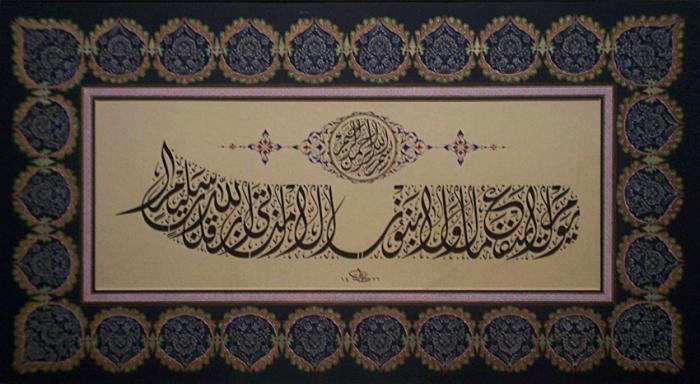 بسم الله الرحمن الرحيم
يوم لا ينفع مال ولا بنون إلا من أتى الله بقلب سليم